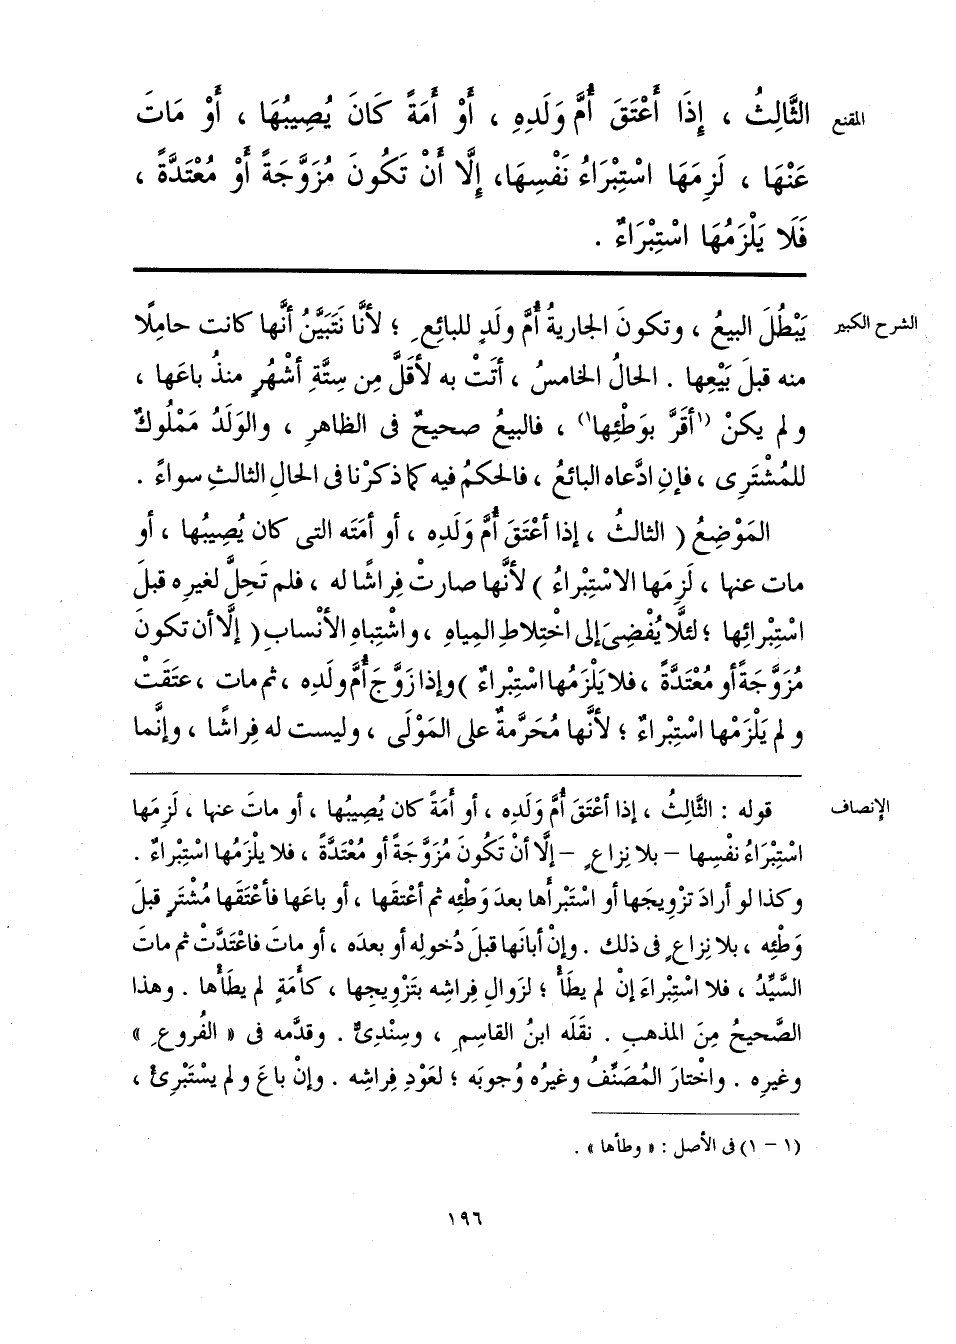 المقنع
الثَّالِثُ ، إِذَا أَعْتَقَ أُمَّ وَلَدِهِ ، أَوْ أَمَةً كَانَ يُصِيبُهَا ، أَوْ مَاتَ
عَنْهَا ، لَزِمَهَا اسْتِبْرَاءُ نَفْسِهَا، إِلَّا أَنْ تَكُونَ مُزَوَّجَةً أَوْ مُعْتَدَّةً ،
فَلَا يَلْزَمُهَا اسْتِبْرَاءٌ .
الشرح الكبير
يَبْطُلَ البيعُ ، وتكونَ الجاريةُ أُمَّ ولَدٍ للبائِعِ ؛ لأنَّا نَتَبَيَّنُ أنَّها كانت حامِلًا
منه قبلَ بَيْعِها . الحالُ الخامسُ ، أتَتْ به لأقَلَّ مِن سِتَّةِ أشْهُرٍ منذُ باعَها ،
ولم يكنْ (١أقَرَّ بوَطْئِها١) ، فالبيعُ صحيحٌ فى الظاهرِ ، والوَلَدُ مَمْلُوكٌ
للمُشْتَرِى ، فإنِ ادَّعاه البائعُ ، فالحكمُ فيه كما ذكرْنا فى الحالِ الثالثِ سواءً .
المَوْضِعُ ( الثالثُ ، إذا أعْتَقَ أُمَّ وَلَدِه ، أو أمَتَه التى كان يُصِيبُها ، أو
مات عنها ، لَزِمَها الاسْتِبْراءُ ) لأنَّها صارتْ فِراشًا له ، فلم تَحِلَّ لغيرِه قبلَ
اسْتِبْرائِها ؛ لئلَّا يُفْضِىَ إلى اخْتِلاطِ المِياهِ ، واشْتِباهِ الأنْسابِ ( إلَّا أن تكونَ
مُزَوَّجَةً أو مُعْتَدَّةً ، فلا يَلْزَمُها اسْتِبْراءٌ ) وإذا زَوَّجَ أُمَّ ولَدِه ، ثم مات ، عتَقَتْ
ولم يَلْزَمْها اسْتِبْراءٌ ؛ لأنَّها مُحَرَّمةٌ على المَوْلَى ، وليست له فِراشًا ، وإنَّما
الإنصاف
قوله : الثَّالِثُ ، إذا أعْتَقَ أُمَّ وَلَدِه ، أو أَمَةً كان يُصِيبُها ، أو ماتَ عنها ، لَزِمَها
اسْتِبْرَاءُ نفْسِها – بلا نِزاعٍ – إلَّا أنْ تَكُونَ مُزَوَّجَةً أو مُعْتَدَّةً ، فلا يلْزَمُها اسْتِبْراءٌ .
وكذا لو أرادَ تزْوِيجَها أو اسْتَبْرأَها بعدَ وَطْئِه ثم أعْتقَها ، أو باعَها فأعْتَقَها مُشْتَرٍ قبلَ
وَطْئِه ، بلا نِزاعٍ فى ذلك . وإنْ أبانَها قبلَ دُخولِه أو بعدَه ، أو ماتَ فاعْتَدَّتْ ثم ماتَ
السَّيِّدُ ، فلا اسْتِبْراءَ إنْ لم يطَأْ ؛ لزَوالِ فِراشِه بتَزْوِيجِها ، كأَمَةٍ لم يطَأْها . وهذا
الصَّحيحُ مِنَ المذهبِ . نقَلَه ابنُ القاسِمِ ، وسِنْدِىٌّ . وقدَّمه فى « الفُروعِ »
وغيرِه . واخْتارَ المُصَنِّفُ وغيرُه وُجوبَه ؛ لعَوْدِ فِراشِه . وإنْ باعَ ولم يسْتَبْرِئْ ،
(١ – ١) فى الأصل : « وطأها » .
١٩٦